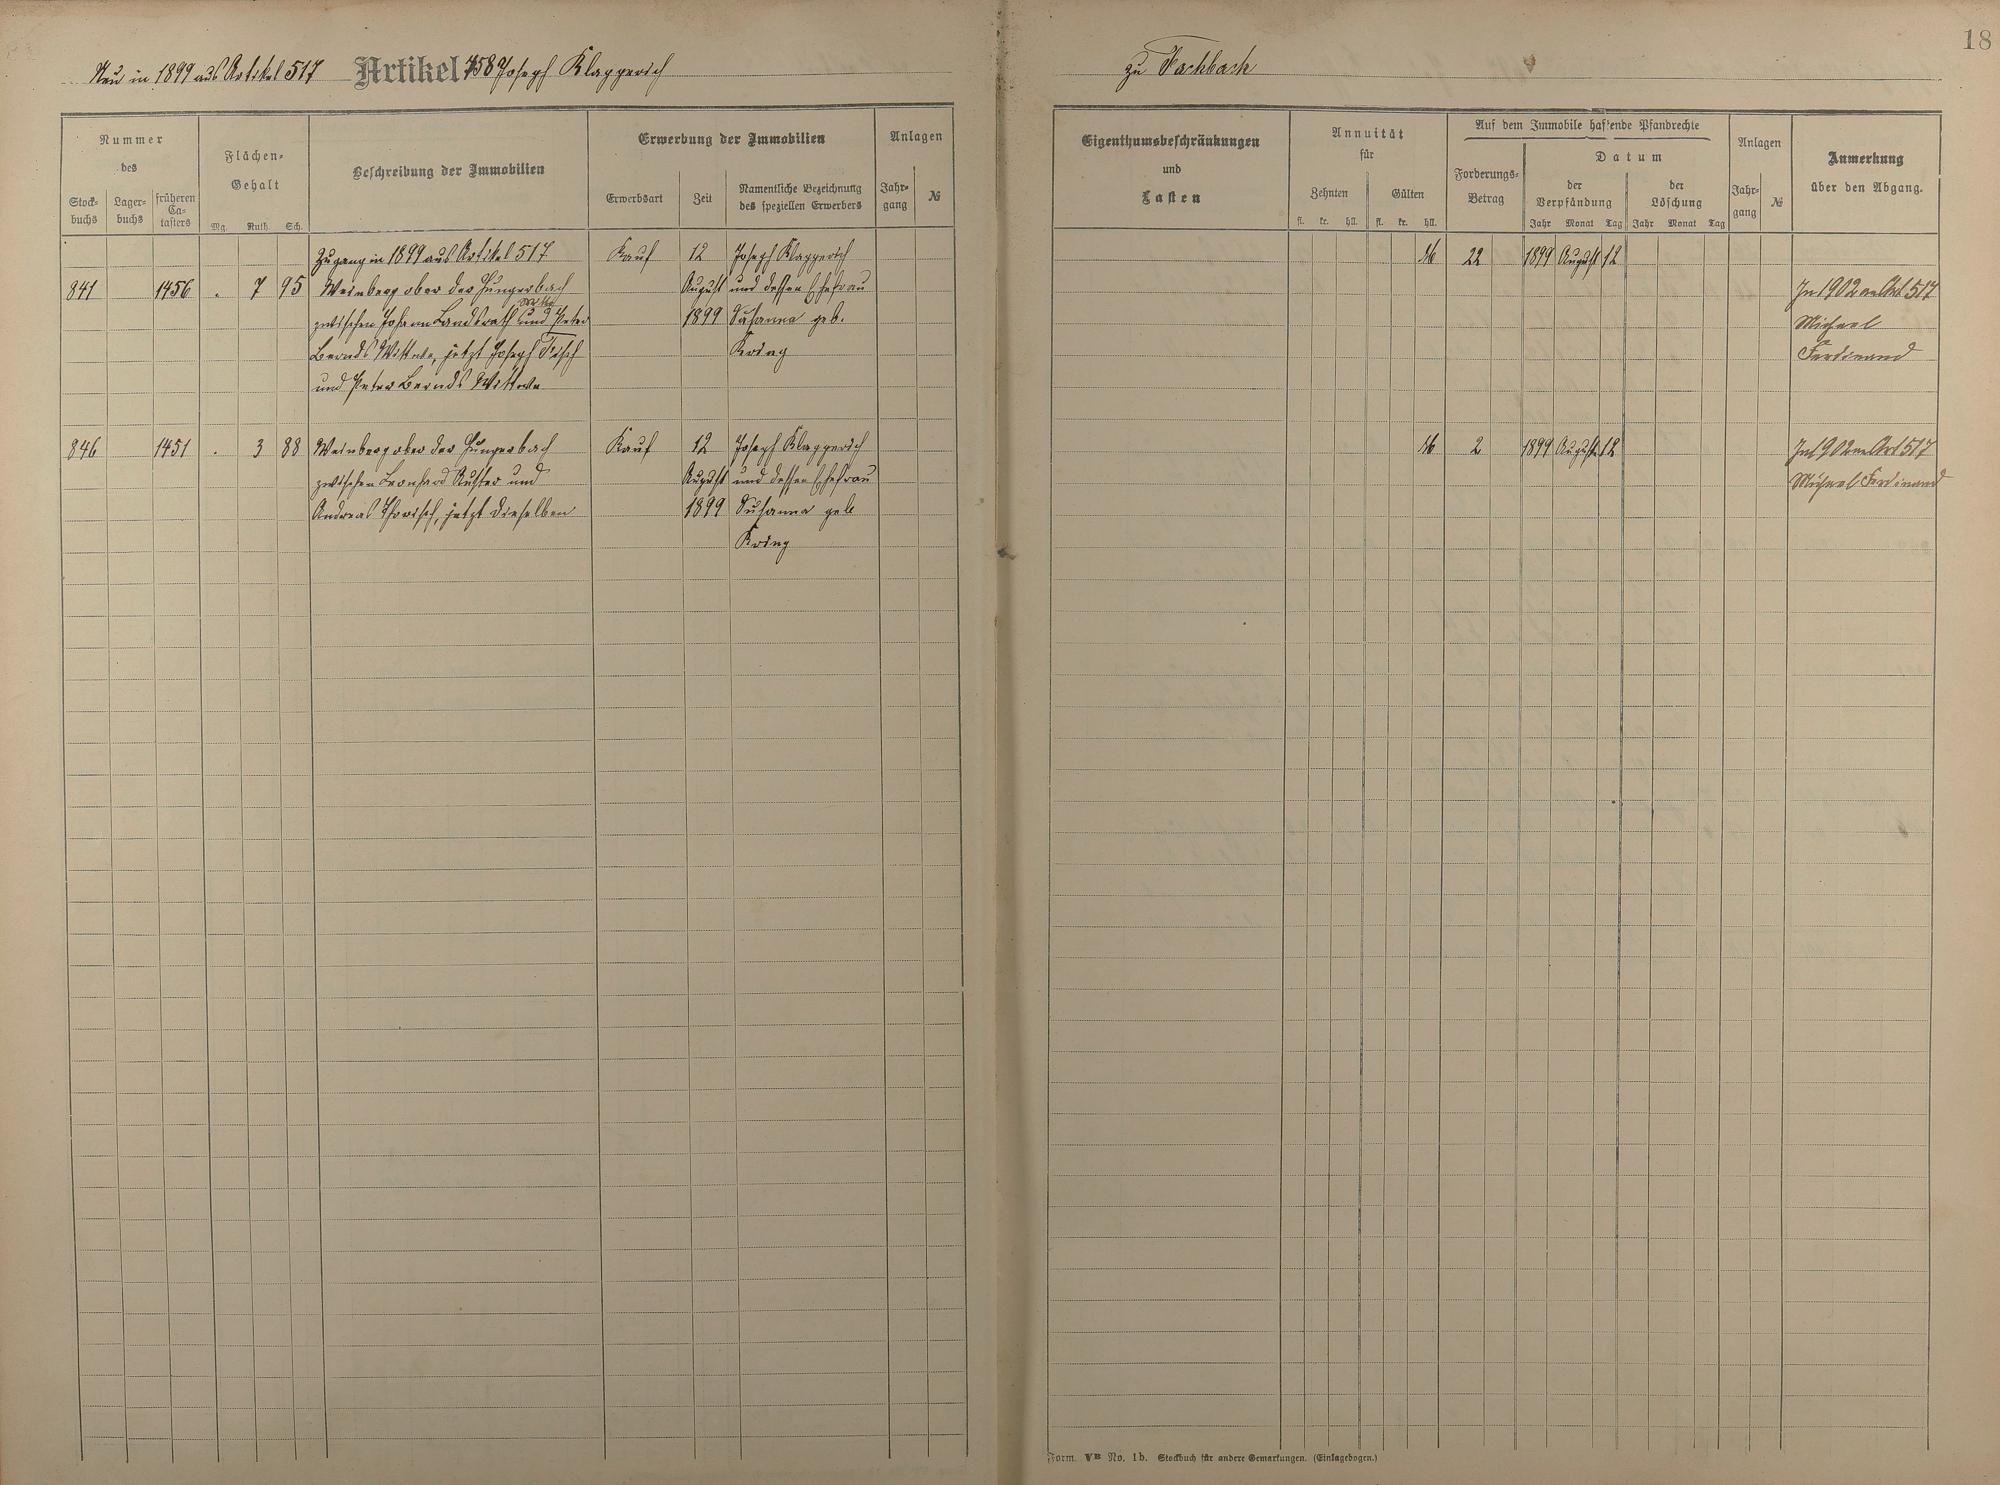 18
Neu in 1899 aus Artikel 517 Artikel 758 Joseph Klapperich
zu Fachbach
Nummer
des
Stock-
buchs
Lager-
buchs
früheren
Ca-
tasters
Flächen-
Gehalt
Mg. Ruth. Sch.
Beschreibung der Immobilien
Erwerbung der Immobilien
Erwerbsart
Zeit
Namentliche Bezeichnung
des speziellen Erwerbers
Anlagen
Jahr-
gang
№
Eigenthumsbeschränkungen
und
Lasten
Annuität
für
Zehnten
Gülten
fl. kr. hll. fl. kr. hll.
Auf dem Immobile haftende Pfandrechte
Forderungs-
Betrag
Datum
der
Verpfändung
Jahr Monat Tag
der
Löschung
Jahr Monat Tag
Anlagen
Jahr-
gang
№
Anmerkung
über den Abgang.
Zugang in 1899 aus Artikel 517 Kauf 12 Joseph Klapperich M 22 1899 August 12
841 1456 . 7 95 Weinberg ober der Hungerbach August und dessen Ehefrau In 1902 an Art. 517
zwischen Johann Landsrath Wttw und Peter 1899 Susanna geb. Michael
Bernds Wittwe, jetzt Joseph Fisch Kring Ferdinand
und Peter Bernds Wittwe
846 1451 . 3 88 Weinberg ober der Hungerbach Kauf 12 Joseph Klapperich M 2 1899 August 12 In 1902 an Art 517
zwischen Leonhard und August und dessen Ehefrau Michael Ferdinand
Andreas jetzt dieselben 1899 Susanna geb
Kring
Form. VB No. 1b. Stockbuch für andere Gemarkungen. (Einlagebogen.)